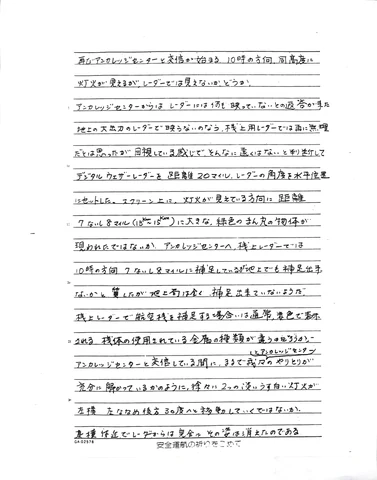 再びアンカレッジセンターと交信が始まる。10時の方向、同高度に
灯火が見えるが、レーダーでは見えないか、どうか。
アンカレッジセンターからは、レーダーには何も映っていないとの返答が来た
地上の大出力のレーダーで映らないのなら、機上用レーダーでは当に無理
だとは思ったが、目視している感じで、そんなに遠くはないと判断して
デジタルウェザーレーダーを 距離20マイル、レーダーの角度を水平位置
にセットした。スクリーン上に、灯火が見えている方向に 距離
7ないし8マイル(13Km~15Km)に大きな、緑色のまん丸の物体が
現われたではないか。アンカレッジセンターへ、機上レーダーでは
10時の方向 7ないし8マイルに捕足しているが地上でも捕足出来
ないかと 質したが地上局は全く、捕足出来ていないようだ。
機上レーダーで航空機を捕足する場合は通常、赤色で表示
される。機体の使用されている金属の種類が違うのだろうか。
(とアンカレッジセンター)
アンカレッジセンターと交信している間に、まるで我々のやりとりが
完全に解かっているかのように、徐々に2つの淡いうす白い灯火が
左横 左ななめ後方30度へと移動していくではないか。
真横付近でレーダーからは完全に その姿は消えたのである
GA-02576
安全運航の祈りをこめて